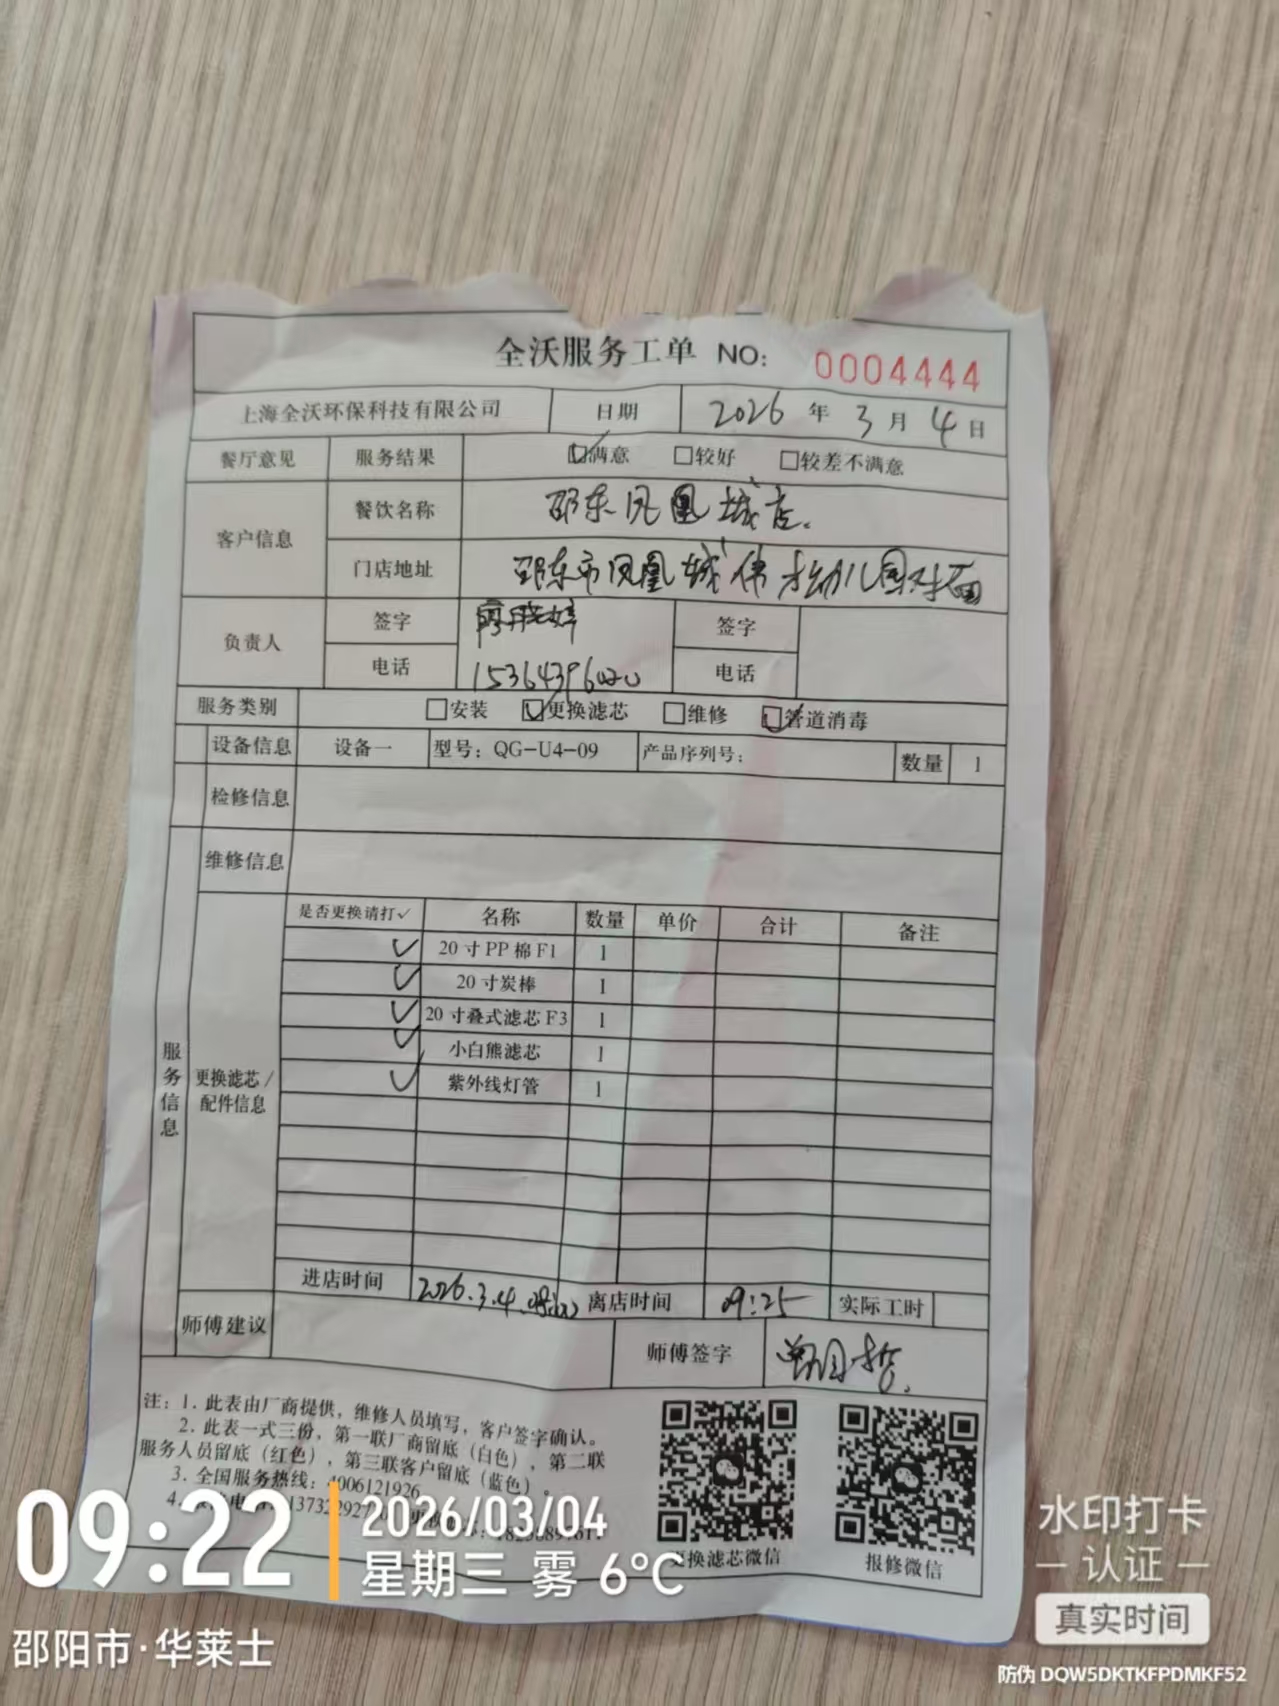 全沃服务工单 NO: 0004444
上海全沃环保科技有限公司 日期 2026 年 3 月 4 日
餐厅意见 服务结果 ☑满意 □较好 □较差不满意
客户信息 餐饮名称 邵东凤凰城店.
门店地址 邵东市凤凰城伟才幼儿园对面
负责人 签字 廖晓婷 签字
电话 电话
服务类别 □安装 ☑更换滤芯 □维修 ☑管道消毒
设备信息 设备一 型号: QG-U4-09 产品序列号: 数量 1
检修信息
维修信息
服务信息
更换滤芯/配件信息
是否更换请打✓ 名称 数量 单价 合计 备注
✓ 20寸PP棉F1 1
✓ 20寸炭棒 1
✓ 20寸叠式滤芯F3 1
✓ 小白熊滤芯 1
✓ 紫外线灯管 1
进店时间 2026.3.4 离店时间 09:25 实际工时
师傅建议 师傅签字
注: 1. 此表由厂商提供, 维修人员填写, 客户签字确认。
2. 此表一式三份, 第一联厂商留底 (白色), 第二联
服务人员留底 (红色), 第三联客户留底 (蓝色)。
3. 全国服务热线: 4006121926
4.
更换滤芯微信 报修微信
09:22
2026/03/04
星期三 雾 6°C
邵阳市·华莱士
水印打卡
认证
真实时间
防伪 DQW5DKTKFPDMKF52